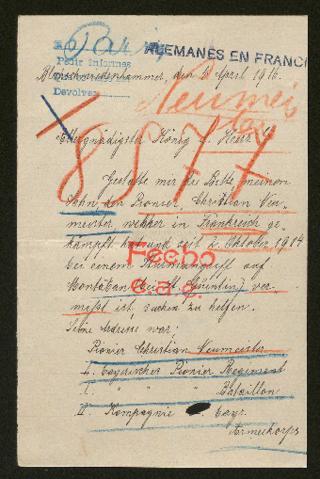 Paris
ALEMANES EN FRANCI
Pedir informes
Devolver
den 2. April 1916.
Neumeis
ter
Allergnädigster König u. Herr!
18577
Gestatte mir die Bitte, meinem
Sohn den Pionier, Christian Neu-
meister, welcher in Frankreich ge-
kämpft hat und seit 2. Oktober 1914
bei einem Sturmangriff auf
Montauban bei St. Quintin ver-
mißt ist, suchen zu helfen.
Fecho
e.a.c.
Seine Adresse war;
Pionier Christian Neumeister
I. bayrischer Pionier Regiment
I. " " Bataillon
II. Kompagnie bayr.
Armeekorps